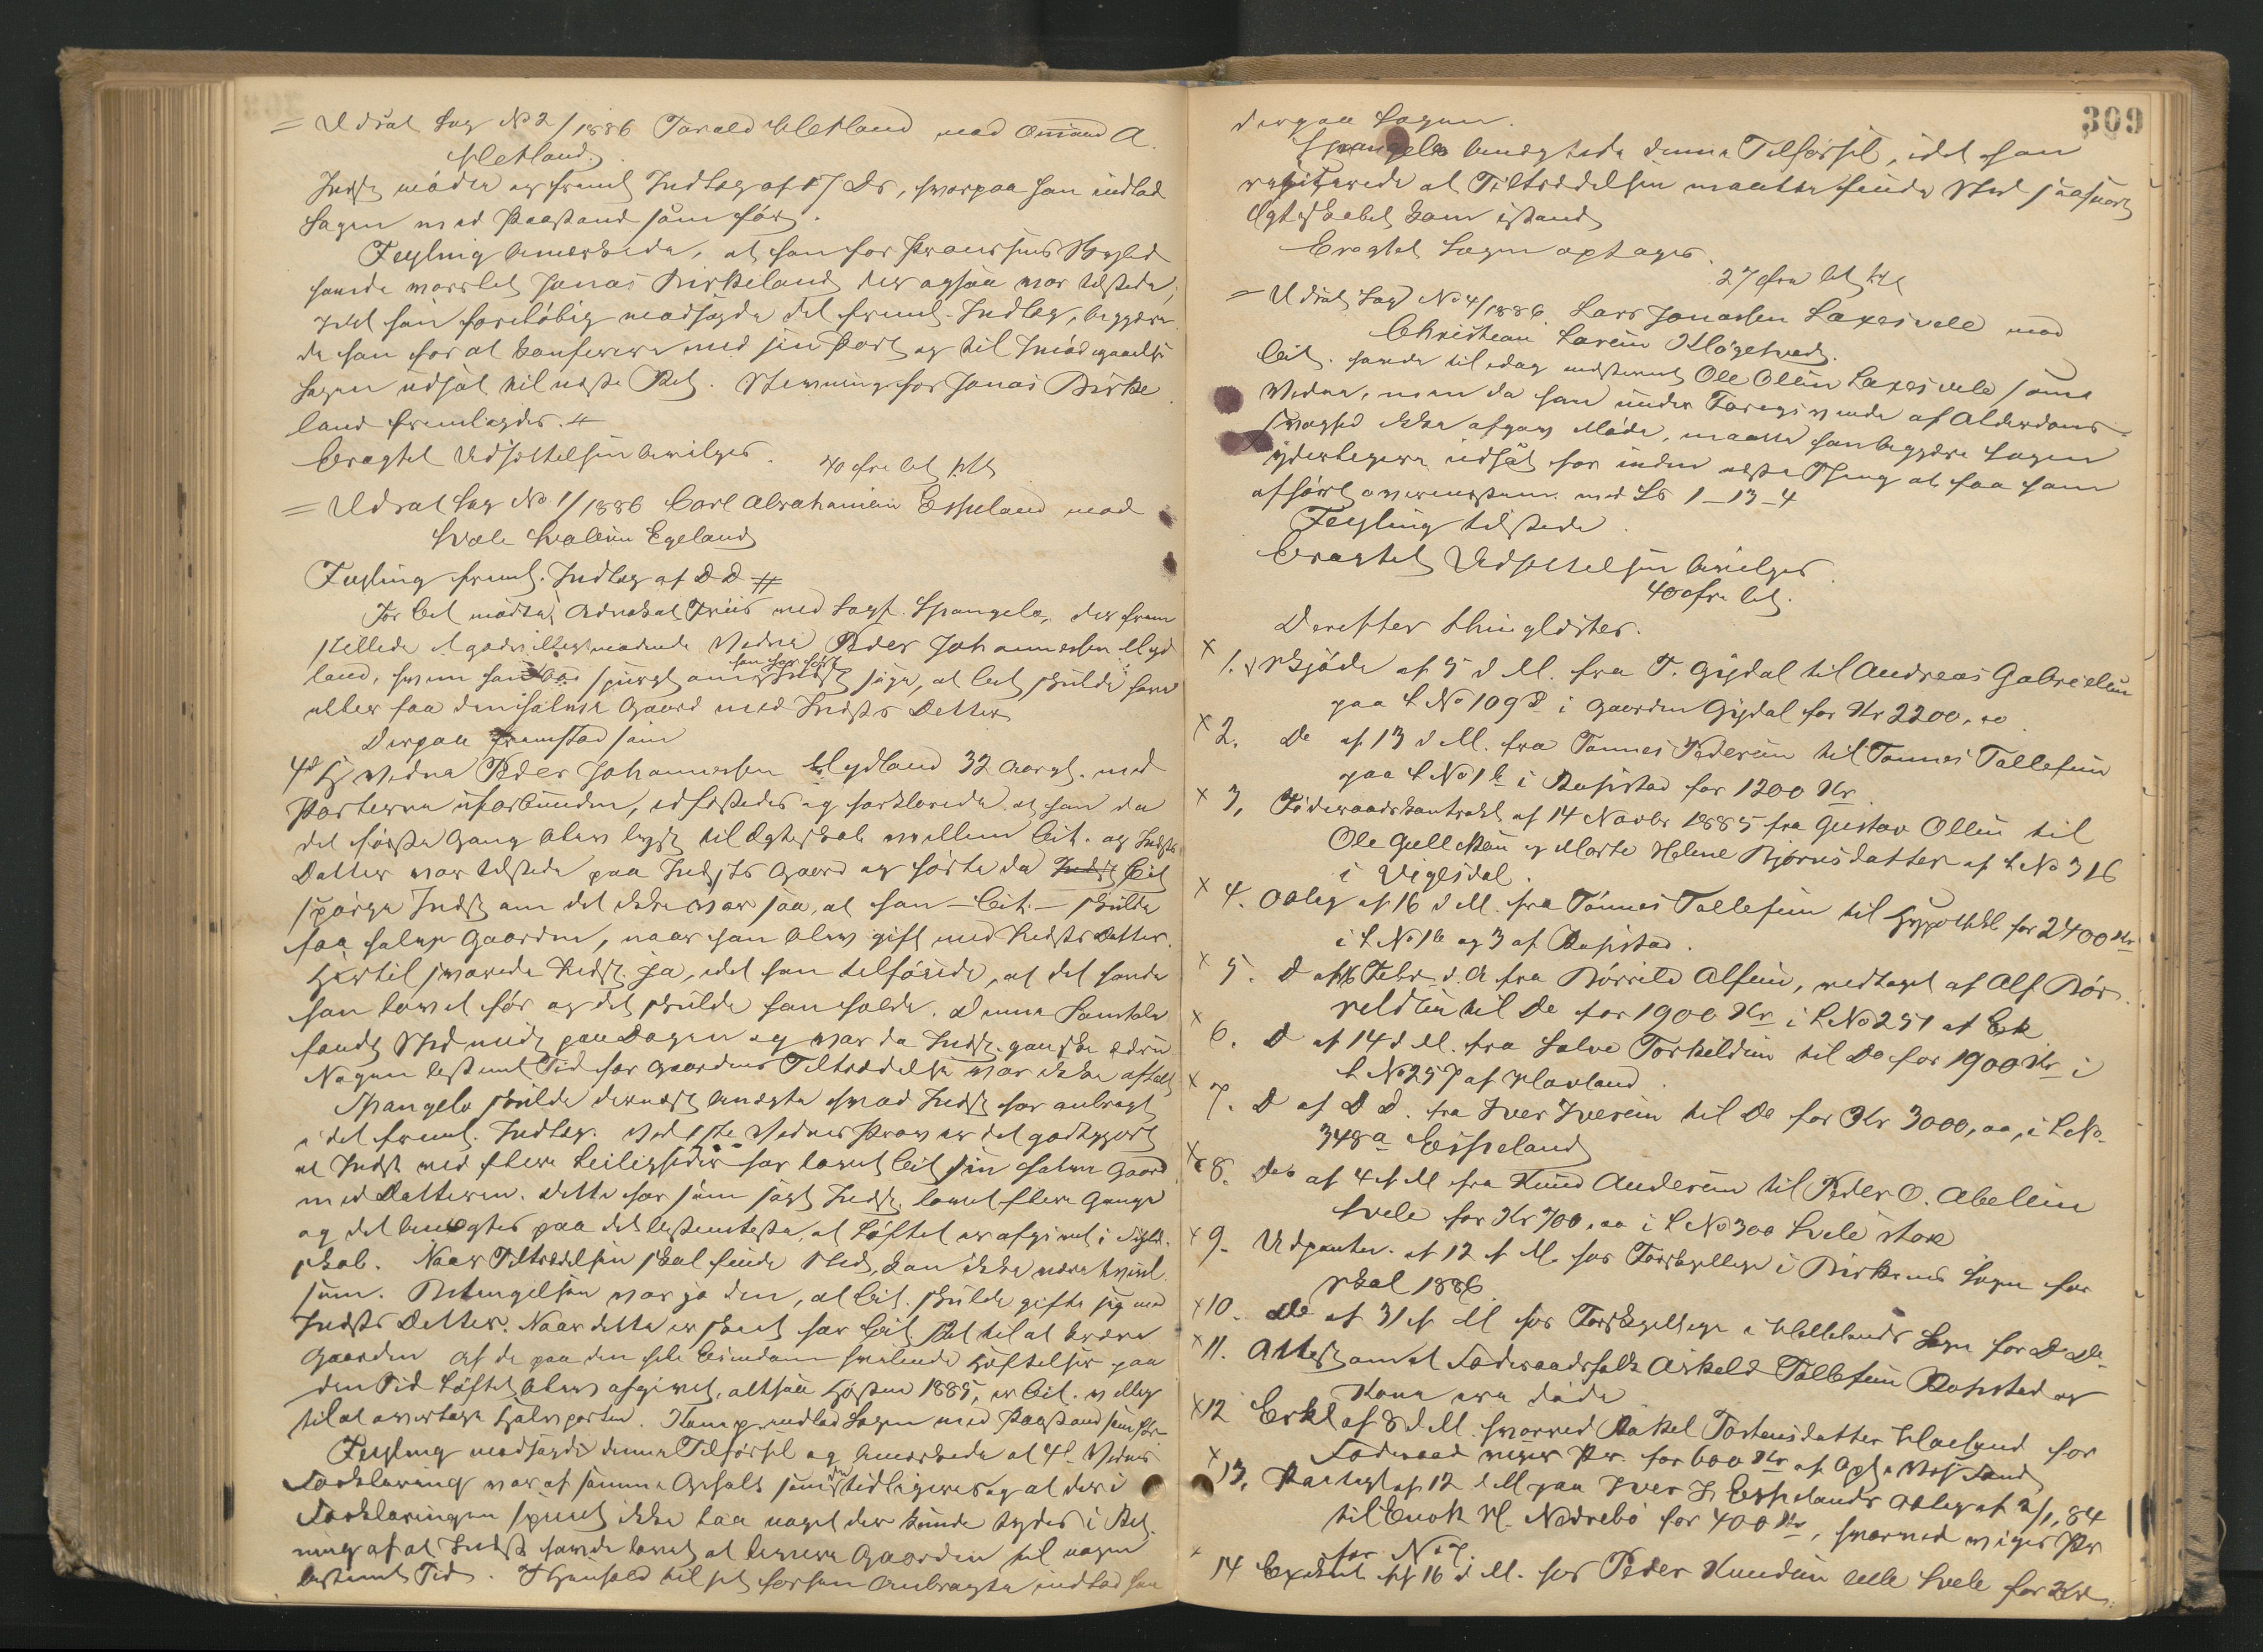 = Udsat Sag No 2/1886 Tarald Hetland mod Omund A.
Hetland.
Indst. mødte og freml. Indlæg af D.D., hvorpaa han indlod
Sagen med Paastand som før.
Feyling bemærkede, at han for Prøvelsens Skyld
havde varslet Jonas Birkeland der ogsaa var tilstede,
Idet han foreløbig modsagde det freml. Indlæg, begjære-
de han for at konferere med sin Part og til Imødegaaelse
Sagen udsat til næste Ret. Stævning for Jonas Birke
land fremlagdes. #
Eragtet Udsættelsen bevilges. 40 Øre bet.
= Udsat Sag No 1/1886 Carl Abrahamsen Espeland mod
Salve Salvesen Egeland
Feyling freml. Indlæg af D D #
For Cit. mødte Advokat Friis ved Sagf. Spangelo, der frem
stillede et godvillig mødende Vidne Peder Johannessen Myd
land, hvem han bad spurgt om han har hørt Indst. sige, at Cit. skulde have
eller faa den halve Gaard med Indsts Datter
Derpaa fremstod som
4de Vidne Peder Johannessen Mydland 32 Aar gl. med
Parterne uforbunden, edfæstedes og forklarede at han da
det første Gang blev lyst til Ægteskab mellem Cit. og Indsts
Datter var tilstede paa Indsts Gaard og hørte da Cit.
spørge Indst. om det ikke var saa, at han – Cit. – skulde
faa halve Gaarden, naar han blev gift med Indsts Datter.
Hertil svarede Indst. ja, idet han tilføiede, at det havde
han lovet før og det skulde han holde. Denne Samtale
fandt Sted midt paa Dagen og var da Indst. ganske ædru
Nogen bestemt Tid for Gaardens Tiltrædelse var ikke aftalt
Spangelo skulde dernæst benægte hvad Indst. har anbragt
i det freml. Indlæg. Ved 1ste Vidnes Prov er det godtgjort
at Indst. ved flere Leiligheder har lovet Cit. sin halve Gaard
med Datteren. Dette har som sagt Indst. lovet flere Gange
og det benægtes paa det bestemteste, at Løftet er afgivet i Fyld-
skab. Naar Tiltrædelsen skal finde Sted, kan ikke være tvivl
som. Betingelsen var jo den, at Cit. skulde gifte sig med
Indsts Datter. Naar dette er skeet har Cit. Ret til at kræve
Gaarden. Af de paa den hele Eiendom hvilende Hæftelser paa
den Tid Løftet blev afgivet, altsaa Høsten 1885, er Cit. villig
til at overtage Halvparten. Komp. indlod Sagen med Paastand som før
Feyling modsagde denne Tilførsel og bemærkede at 4de Vidnes
Forklaring var af samme Gehalt som de tidligeres og at der i
Forklaringen spurgt ikke laa noget der kunde tydes i Ret-
ning af at Indst. havde lovet at levere Gaarden til nogen
bestemt Tid. I Henhold til det forhen Anbragte indlod han
309
derpaa Sagen.
Spangelo benægtede denne Tilførsel, idet han
at Tiltrædelsen maatte finde Sted saasnart
Ægteskabet kom istand
Eragtet Sagen optages.
27 Øre bet
= Udsat Sag No 4/1886 Lars Jonassen Laxesvele mod
Christian Larsen Kløgetvedt.
Cit. havde til idag indstævnt Ole Olsen Laxesvele som
Vidne, men da han under Foregivende af Alderdoms-
svaghed ikke afgav Møde, maatte han begjære Sagen
yderligere udsat for inden næste Thing at faa ham
afhørt overensstem. med L 1–13–4
Feyling tilstede.
Eragtet Udsættelsen bevilges.
40 Øre bet.
Derefter thinglæstes.
x 1. Skjøde af 5 d M. fra T. Gjedal til Andreas Gabrielsen
paa L No 109 d i Gaarden Gjedal for Kr 2200,00
x 2. Do af 13 d M. fra Tønnes Pedersen til Tønnes Tollefsen
paa L No 1 b i Røpstad for 1200 Kr
x 3. Føderaadskontrakt af 14 Novbr 1885 fra Gustav Olsen til
Ole Gulleksen og Marte Helene Bjørnsdatter af L No 316
i Vigesdal.
x 4. Oblig af 16 d M. fra Tønnes Tollefsen til Hypothbk for 2400 Kr
i L No 1 b og 3 af Røpstad.
x 5. D af 16 Febr d. A fra Børrild Alfsen, vedtaget af Alf Bør-
reldsen til Do for 1900 Kr i L No 251 af Eek
x 6. D af 14 d M. fra Salve Torkeldsen til Do for 1900 Kr i
L No 257 af Hovland.
x 7. D af D D. fra Iver Iversen til Do for Kr 3000,00, i L No
348 a Espeland
x 8. Do af 4 f M fra Knud Andersen til Peder O. Abelsen
Svele for Kr 700,00 i L No 300 Svele store
x 9. Udpantn. af 12 f M. hos Forskjellige i Birkrems Sogn for
Skat 1886
x 10. Do af 31 f M hos Forskjellige i Hellelands Sogn for D Do
x 11. Attest om at Føderaadsfolk Askeld Tollefsen Røpstad og
Kone ere døde
x 12 Erkl af 8 d M. hvorved Rakel Torkensdatter for
Føderaad viger Pr. for 600 Kr af Opl. Væs. Fond
x 13. Paategn af 12 d M paa Iver I. Espelands Oblig af 2/1, 84
til Enok H. Nedrebø for 400 Kr, hvorved viges Pr
for No 7.
x 14 Exekut af 16 d M. hos Peder Knudsen lille Svele for Kr